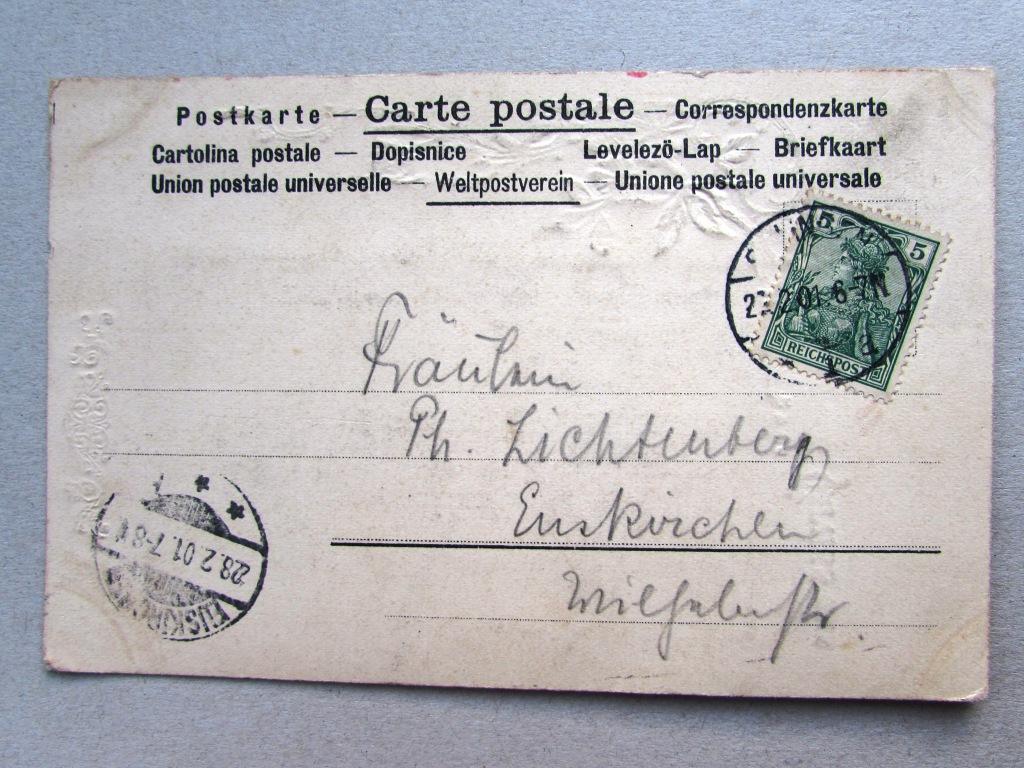 Postkarte — Carte postale — Correspondenzkarte
Cartolina postale — Dopisnice Levelezö-Lap — Briefkaart
Union postale universelle — Weltpostverein — Unione postale universale
5 5
2.01 6-7N
a
REICHSPOST
Fräulein
Ph. Lichtenberg
Euskirchen
Wilhelmstr.
28.2.01.7-8
EUSKIRCHEN